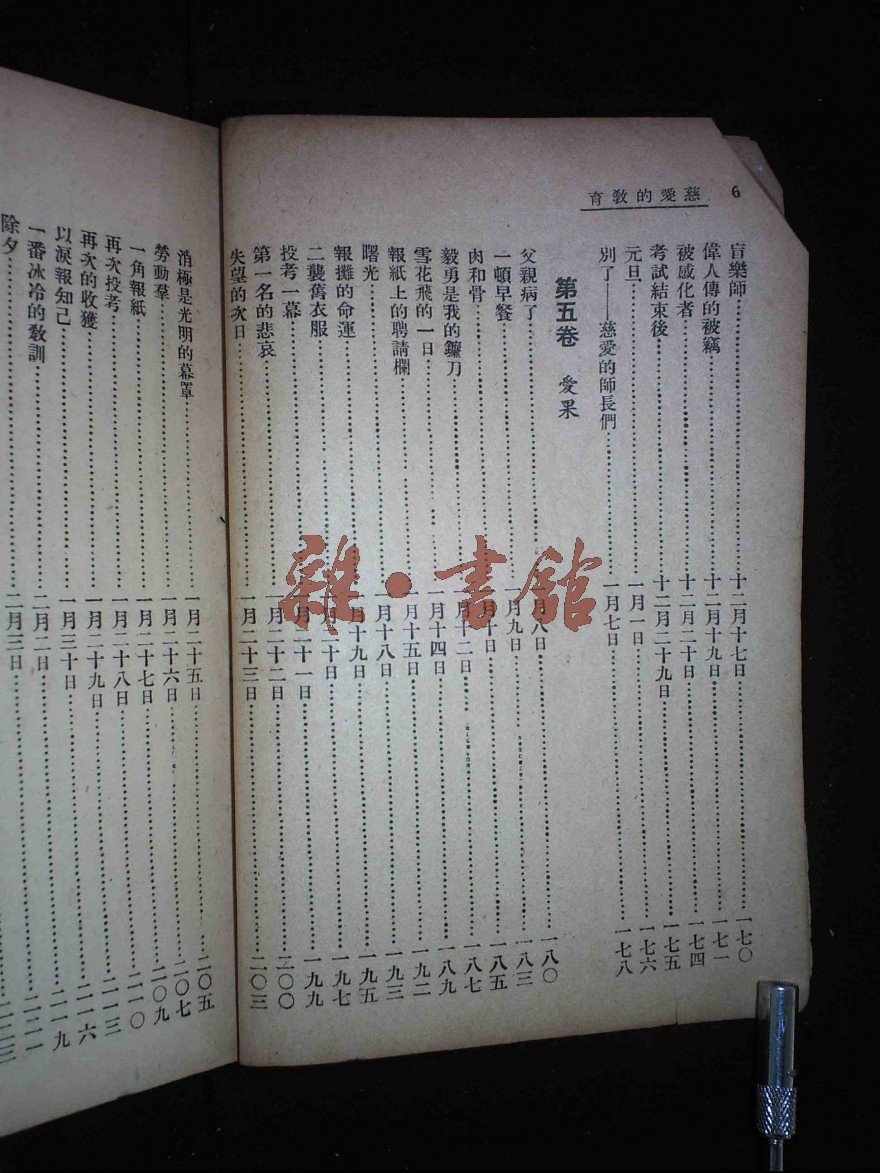 6
慈愛的教育
盲樂師……十二月十七日……一七〇
偉人傳的被竊……十二月十九日……一七一
被感化者……十二月二十日……一七四
考試結束後……十二月二十九日……一七五
元旦……一月一日……一七六
別了——慈愛的師長們……一月七日……一七八
第五卷 愛果
父親病了……一月八日……一八〇
一頓早餐……一月九日……一八三
肉和骨……一月十日……一八五
毅勇是我的鐮刀……一月十二日……一八七
雪花飛的一日……一月十四日……一八九
報紙上的聘請欄……一月十五日……一九二
曙光……一月十八日……一九三
報攤的命運……一月十九日……一九五
二襲舊衣服……一月二十日……一九七
投考一幕……一月二十一日……一九九
第一名的悲哀……一月二十二日……二〇〇
失望的次日……一月二十三日……二〇三
消極是光明的幕罩……一月二十五日……二〇五
勞動羣……一月二十六日……二〇七
一角報紙……一月二十七日……二〇九
再次投考……一月二十八日……二一〇
再次的收獲……一月二十九日……二一三
以淚報知己……一月三十日……二一六
一番冰冷的教訓……二月二日……二一九
除夕……二月三日……二二一
二二三
雜·書館